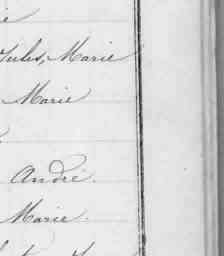 Jules, Marie
Marie
André.
Marie.